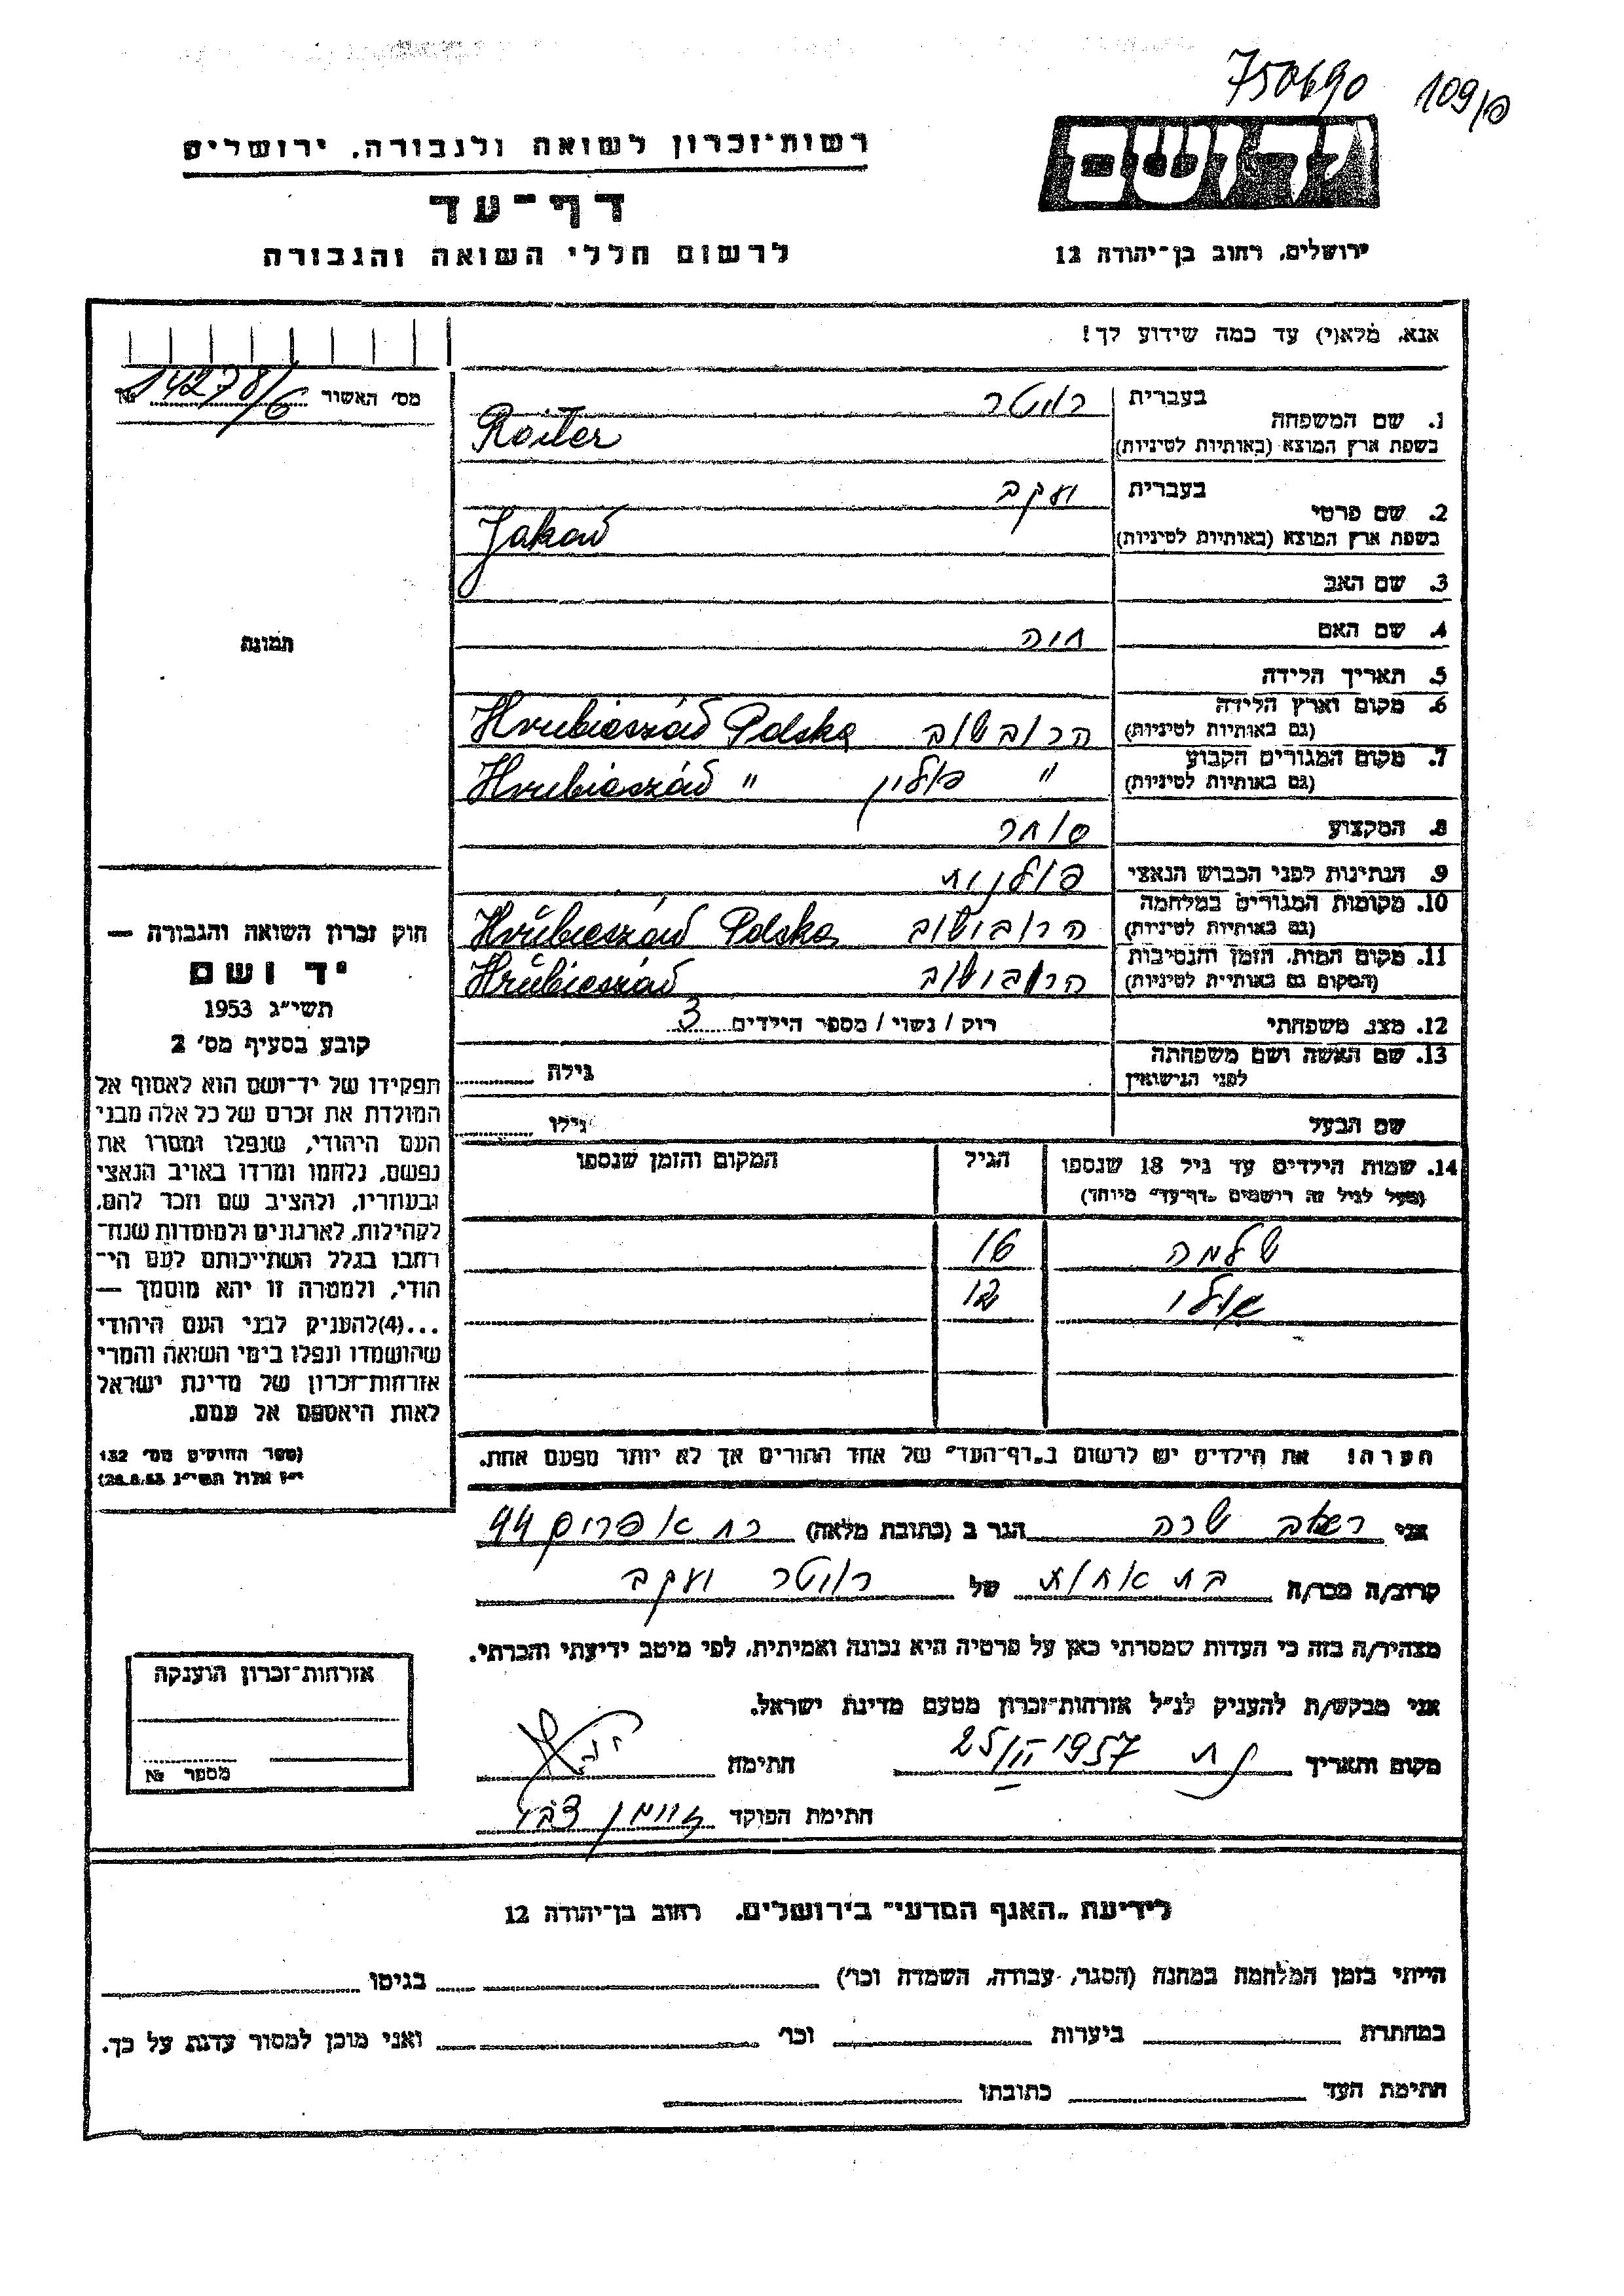 750690 109/פ
רשות־זכרון לשואה ולגבורה, ירושלים
דף־עד
לרשום חללי השואה והגבורה
יד ושם
ירושלים, רחוב בן־יהודה 12
אנא, מלא(י) עד כמה שידוע לך!
מס' האשור 14278/6 №
1. שם המשפחה בעברית רויטר
בשפת ארץ המוצא (באותיות לטיניות) Roiter
2. שם פרטי בעברית יעקב
בשפת ארץ המוצא (באותיות לטיניות) Jakow
3. שם האב
4. שם האם חיה
5. תאריך הלידה
6. מקום וארץ הלידה (גם באותיות לטיניות) הרובשוב Hrubieszów Polska
7. מקום המגורים הקבוע (גם באותיות לטיניות) " פולין Hrubieszów "
8. המקצוע סוחר
9. הנתינות לפני הכבוש הנאצי פולנית
10. מקומות המגורים במלחמה (גם באותיות לטיניות) הרובישוב Hrŭbieszów Polska
11. מקום המות, הזמן והנסיבות (המקום גם באותיות לטיניות) הרובישוב Hrŭbieszów
12. מצב משפחתי רוק / נשוי / מספר הילדים 3
13. שם האשה ושם משפחתה לפני הנישואין גילה
שם הבעל גילו
14. שמות הילדים עד גיל 18 שנספו הגיל המקום והזמן שנספו
(מעל לגיל זה רושמים „דף־עד" מיוחד)
שלמה 16
12
הערה! את הילדים יש לרשום ב„דף־העד" של אחד ההורים אך לא יותר מפעם אחת.
תמונה
חוק זכרון השואה והגבורה —
יד ושם
תשי"ג 1953
קובע בסעיף מס' 2
תפקידו של יד־ושם הוא לאסוף אל
המולדת את זכרם של כל אלה מבני
העם היהודי, שנפלו ומסרו את
נפשם, נלחמו ומרדו באויב הנאצי
ובעוזריו, ולהציב שם וזכר להם,
לקהילות, לארגונים ולמוסדות שנח־
רבו בגלל השתייכותם לעם הי־
הודי, ולמטרה זו יהא מוסמך —
...(4)להעניק לבני העם היהודי
שהושמדו ונפלו בימי השואה והמרי
אזרחות־זכרון של מדינת ישראל
לאות היאספם אל עמם.
(ספר החוקים מס' 132
י"ז אלול תשי"ג 28.8.53)
אני שרה הגר ב (כתובת מלאה) 44
קרוב/ה מכר/ה בת אחות של רויטר יעקב
מצהיר/ה בזה כי העדות שמסרתי כאן על פרטיה היא נכונה ואמיתית, לפי מיטב ידיעתי והכרתי.
אני מבקש/ת להעניק לנ"ל אזרחות־זכרון מטעם מדינת ישראל.
מקום ותאריך 25/II 1957 חתימה
חתימת הפוקד
אזרחות־זכרון הוענקה
מספר №
לידיעת „האגף המדעי" בירושלים, רחוב בן־יהודה 12
הייתי בזמן המלחמה במחנה (הסגר, עבודה, השמדה וכו') בגיטו
במחתרת ביערות וכו' ואני מוכן למסור עדות על כך.
חתימת העד כתובתו